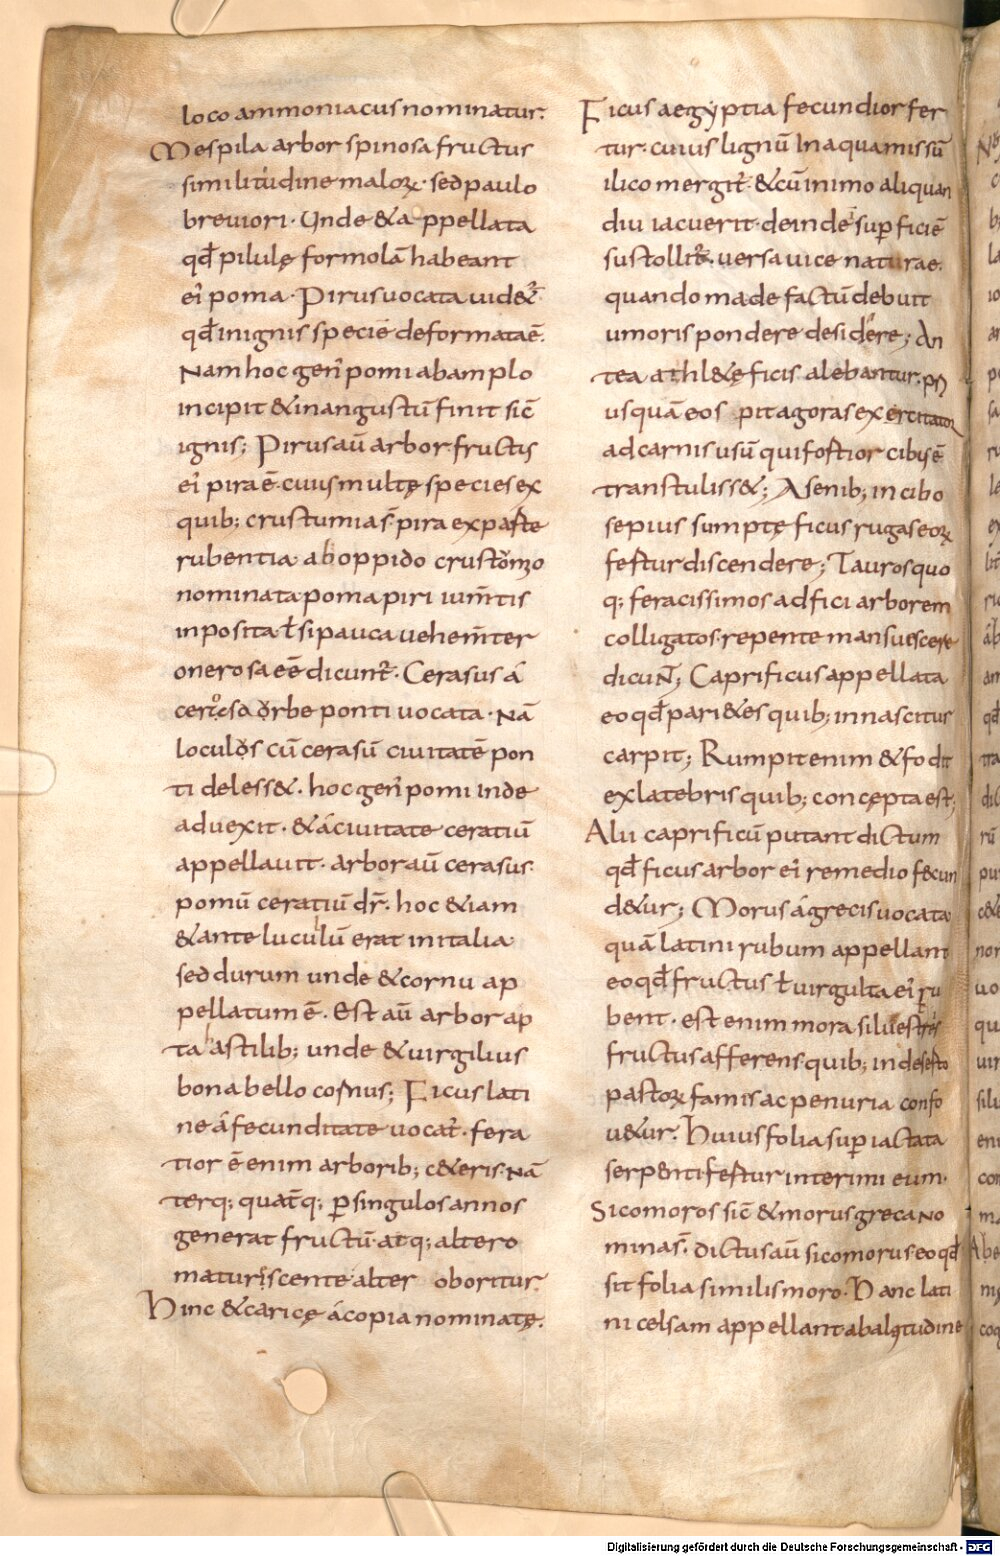 loco ammoniacus nominatur.
Mespila arbor spinosa fructus
similitudine maloꝝ · sed paulo
breuiori · Unde & appellata
qđ pilulę formolā habeant
ei᾽ poma · Pirus uocata uid&ur̄
qđ in ignis speciē deformata ē.
Nam hoc gen᾽ pomi ab amplo
incipit & in angustū finit sic̄
ignis; Pirus aū arbor · fructus
ei᾽ pira ē · cuius multę species ex
quib; crustumia s̄ pira ex parte
rubentia · ab oppido crustomio
nominata poma piri ium̄tis
inposita ł si pauca uehem̄ter
onerosa eē dicunt᷑ · Cerasus á
cerasa orbe ponti uocata · Nā
loculos cū cerasū ciuitatē pon
ti deless& · hoc gen᾽ pomi inde
aduexit · & á ciuitate ceratiū
appellauit · arbor aū cerasus ·
pomū ceratiū dr̄ · hoc & iam
& ante luculū erat in italia
sed durum unde & cornu ap
pellatum ē · Est aū arbor ap
ta hastilib; unde & uirgilius
bona bello cornus; Ficus lati
ne á fecunditate uocat᷑ · fera
tior ē enim arborib; c&eris · Nā
terq; quat̄q; ꝑ singulos annos
generat fructū · atq; altero
maturiscente alter oboritur
Hinc & caricę á copia nominatę.
Ficus aegyptia fecundior fer
tur · cuius lignū In aqua missū
ilico mergit᷑ · & cū in imo aliquan
diu iacuerit · deinde Insuꝑficiē
sustollit᷑ · uersa uice naturae ·
quando madefactū debuit
umoris pondere desidere; An
tea athl&ę ficis alebantur · pri
usquā eos pitagoras exercitatoꝝ
ad carnis usū qui fortior cibus ē
transtuliss&; A senib; in cibo
sepius sumptę ficus rugas eoꝝ
fertur discendere; Tauros quo
q; feracissimos ad fici arborem
colligatos · repente mansuescere
dicuN̄; Caprificus appellata
eo qđ pari&es quib; innascitur
carpit; Rumpit enim & fodit
ex latebris quib; concępta est;
Alii caprificū putant dictum
qđ ficus arbor ei᾽ remedio fecun
d&ur; Morus á grecis uocata
quā latini rubum appellant
eo qđ fructus ł uirgulta ei᾽ ru
bent · est enim mora siluestris
fructus afferens quib; in deserto
pastoꝝ famis ac penuria confo
u&ur · Huius folia suꝑiactata
serpenti fertur interimi eum ·
Sicomoros sic̄ & morus greca No
mina s̄ · dictus aū sicomorus eo qđ
sit folia similis moro · Hanc lati
ni celsam appellant ab altitudine